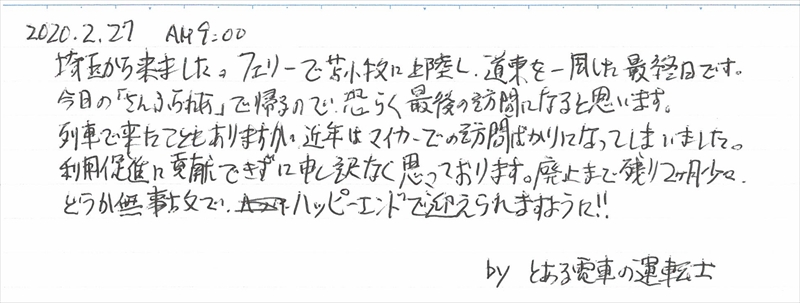 2020.2.27 AM9:00
埼玉から来ました。フェリーで苫小牧に上陸し、道東を一周した最終日です。
今日の「さんふらわあ」で帰るので、恐らく最後の訪問になると思います。
列車で来たこともありますが、近年はマイカーでの訪問ばかりになってしまいました。
利用促進に貢献できずに申し訳なく思っております。廃止まで残り2ヶ月少々、
どうか無事故で、ハッピーエンドで迎えられますように!!
by とある電車の運転士